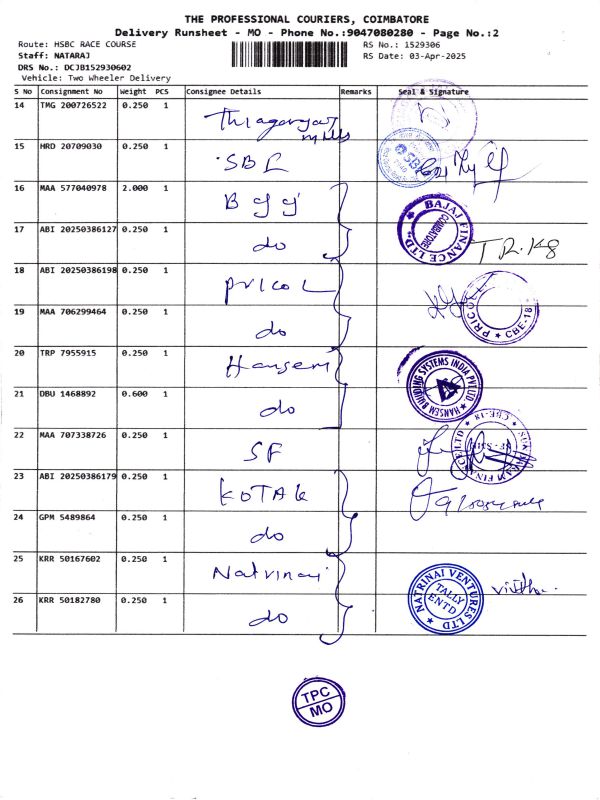 THE PROFESSIONAL COURIERS, COIMBATORE
Delivery Runsheet - MO - Phone No.:9047080280 - Page No.:2
Route: HSBC RACE COURSE
RS No.: 1529306
Staff: NATARAJ
RS Date: 03-Apr-2025
DRS No.: DCJB152930602
Vehicle: Two Wheeler Delivery
S No Consignment No Weight PCS Consignee Details Remarks Seal & Signature
14 TMG 200726522 0.250 1 mills
15 HRD 20709030 0.250 1 SBL SBF
16 MAA 577040978 2.000 1 BAJAJ FINANCE LTD COIMBATORE
17 ABI 20250386127 0.250 1 do T R.
18 ABI 20250386198 0.250 1 Pricol
19 MAA 706299464 0.250 1 do PRICOL CBE-18
20 TRP 7955915 0.250 1 Hansem
21 DBU 1468892 0.600 1 do HANSEM BUILDING SYSTEMS INDIA PVT LTD
22 MAA 707338726 0.250 1 SF FINANCE LTD CBE-18
23 ABI 20250386179 0.250 1 KOTAK
24 GPM 5489864 0.250 1 do
25 KRR 50167602 0.250 1 Natrinai
26 KRR 50182780 0.250 1 do NATRINAI VENTURES LTD TALLY ENTD
TPC
MO